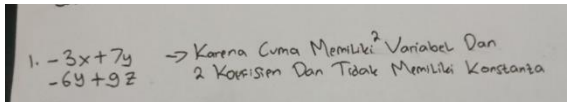 1. -3x+7y → Karena Cuma Memiliki 2 Variabel Dan
-6y+9z 2 Koefisien Dan Tidak Memiliki Konstanta